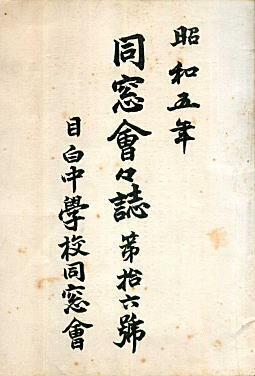 昭和五年
同窓會々誌 第拾六號
目白中學校同窓會